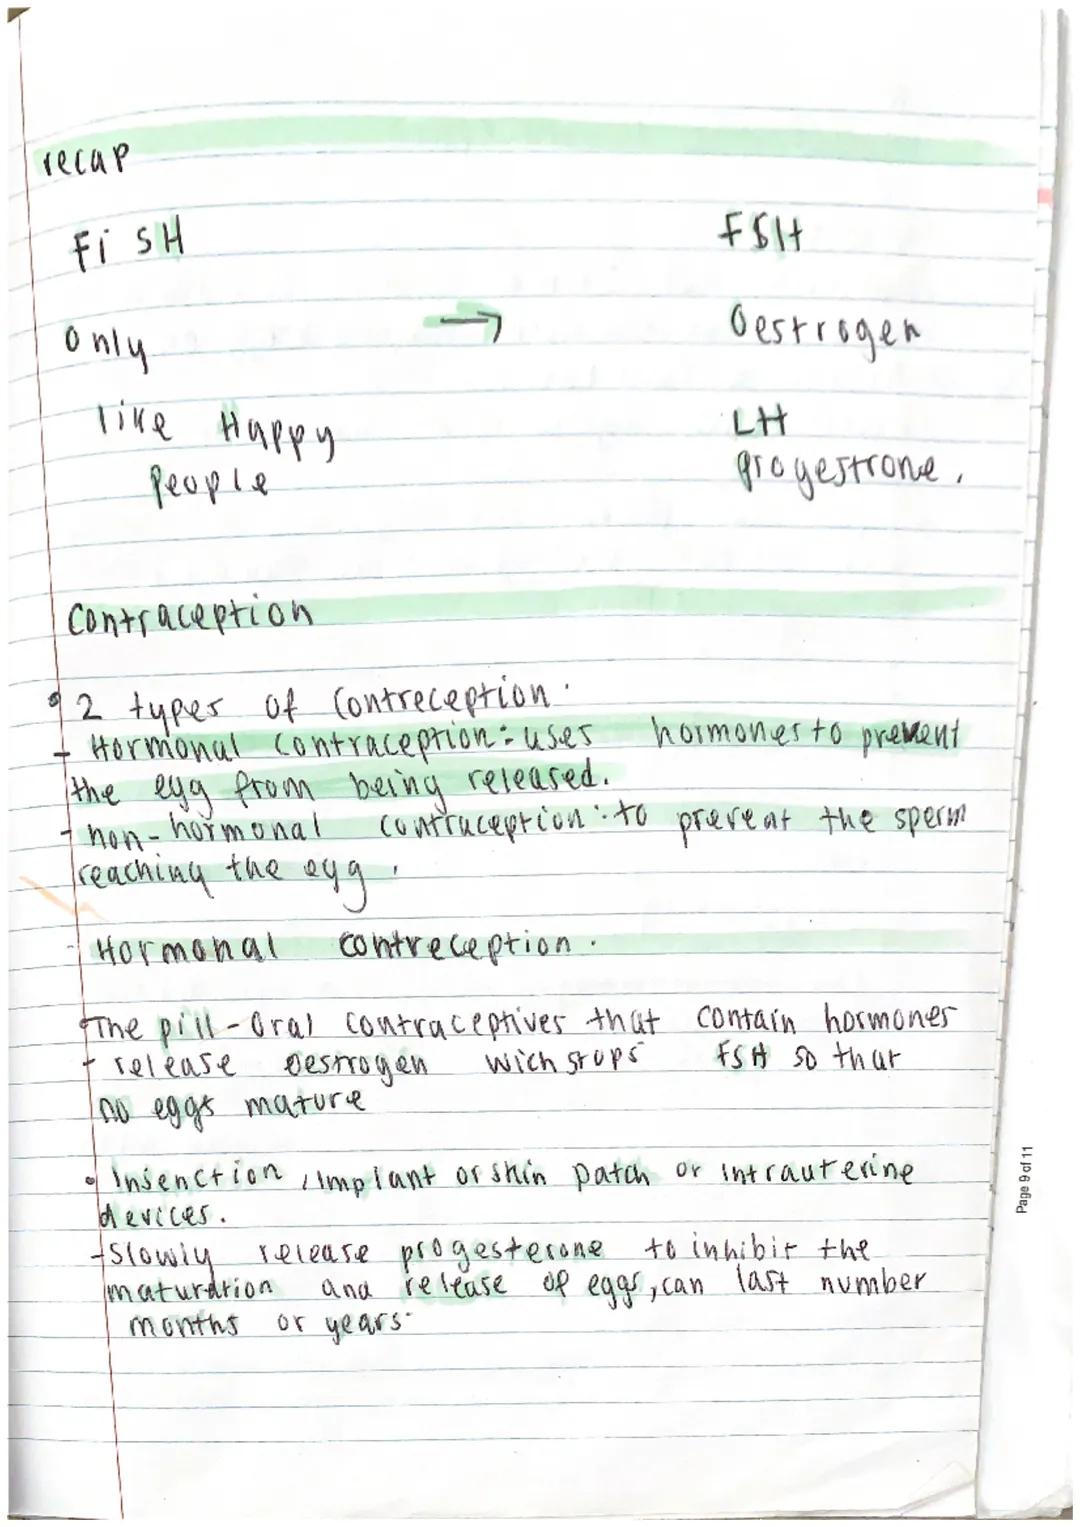 recap
FiSH
FSH
only
→
Oestrogen
like Happy
LH
people
progestrone.
Contraception
• 2 types of Contreception.
- Hormonal Contraception: uses hormones to prevent
the egg from being released.
- non-hormonal contraception: to prevent the sperm
reaching the egg.
- Hormonal contreception.
• The pill - Oral contraceptives that contain hormones
- release oestrogen wich stops FSH so that
no eggs mature
• Insenction, implant or skin patch or intrauterine
devices.
- Slowly release progesterone to inhibit the
maturation and release of eggs, can last number
months or years.
Page 9 of 11